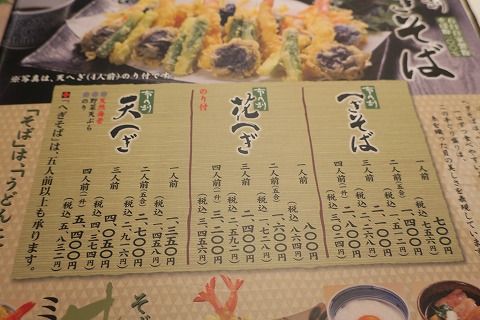 ぎそば
※写真は、天へぎ(4人前)のり付です。
布乃利
へぎそば
一人前 七〇〇円
(税込 七五六円)
二人前(五合) 一、四〇〇円
(税込 一、五一二円)
三人前 二、一〇〇円
(税込 二、二六八円)
四人前(一升) 二、八〇〇円
(税込 三、〇二四円)
布乃利
花へぎ
のり付
一人前 八〇〇円
(税込 八六四円)
二人前(五合) 一、六〇〇円
(税込 一、七二八円)
三人前 二、四〇〇円
(税込 二、五九二円)
四人前(一升) 三、二〇〇円
(税込 三、四五六円)
布乃利
天へぎ
天然海老
野菜天ぷら
のり
一人前 一、三五〇円
(税込 一、四五八円)
二人前(五合) 二、七〇〇円
(税込 二、九一六円)
三人前 四、〇五〇円
(税込 四、三七四円)
四人前(一升) 五、四〇〇円
(税込 五、八三二円)
「へぎそば」は、五人前以上も承ります。
「そば」は、「うどん」に